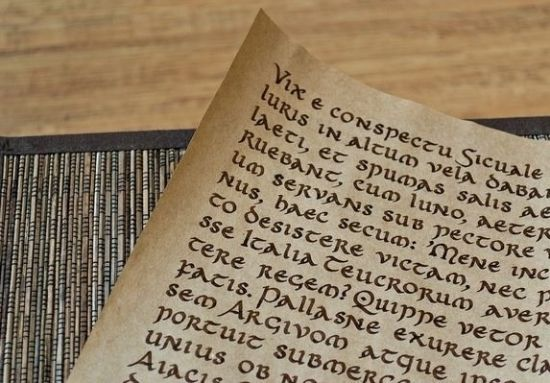 Vix e conspectu Sicuale
luris in altum vela daba
laeti, et spumas salis ae
ruebant, cum Iuno, aeter
um servans sub pectore v
nus, haec secum: 'Mene inc
to desistere victam, nec p
sse Italia Teucrorum aver
tere regem? Quippe vetor
fatis. Pallasne exurere cla
sem Argivom atque ips
portuit submerg
unius ob no
Aiacis